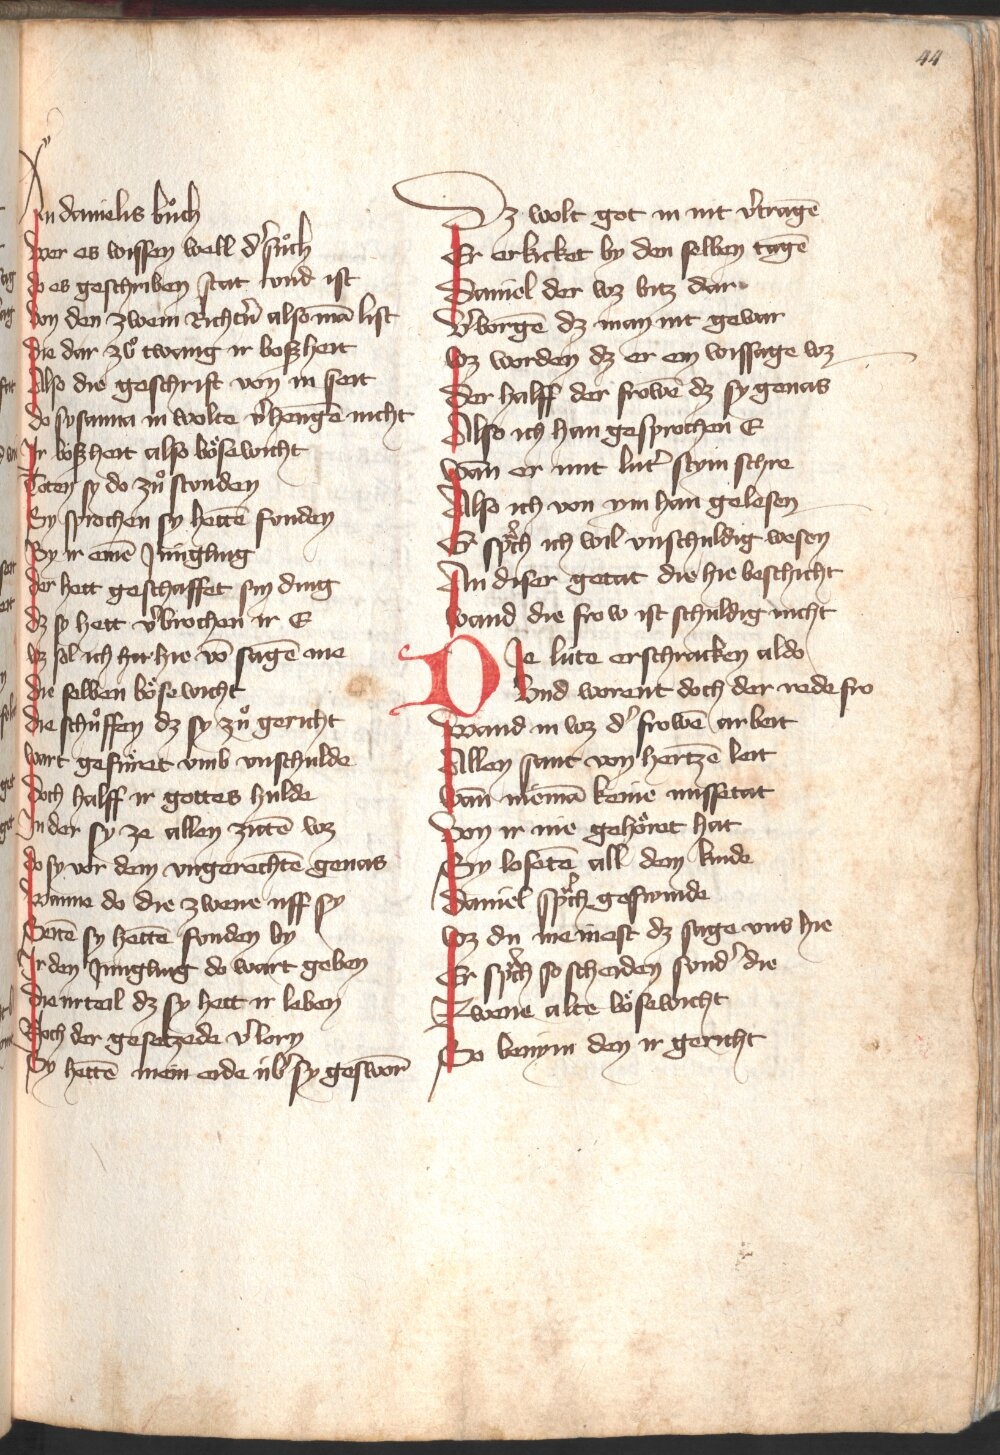 44
An danielis bůch
Wer es wissen well d' sůch
do es geschriben stat vnd ist
Von den zwein Richtn̄ also mā list
die dar zů twang ir boßheit
Also die geschrift von in seit
do susanna in wolte v'hengē nicht
Ir bößheit also bösewicht
Toten sy do zů stunden
Sy sprochen sy hettē funden
By ir einē Jüngling
der hett geschaffet sin ding
dz sy hett v'brochen ir E
wz sol ich hie vō sagē me
die selben bösewicht
die schůffen dz sy zů gericht
wart gefüret vmb vnschulde
Doch halff ir gottes hulde
In der sy ze allen zitē wz
do sy vor dem vngerechtē genas
Wanne do die zwene uff sy
Seitē sy hettē funden by
Ir den Jüngling do wart geben
die urteil dz sy hett ir leben
Noch der gesetzede v'lorn
Sy hettē mein eide üb' sy gesworn
Dz wolt got in nit v'tragē
Er erkicket by den selben tagē
Daniel der wz bitz dar
V'borgē dz man nit gewar
wz worden dz er ein wissage wz
Der halff der frowē dz sy genas
Also ich han gesprochen E
Wān er mit lut' stym schre
Also ich von ym han gelesen
Er sprch ich wil vnschuldig wesen
An diser getat die hie beschicht
wand die frow ist schuldig nicht
Die lüte erschracken aldo
Vnd worent doch der rede fro
Wand in wz d' frowē arbeit
Allen samt von hertzē leit
Wān niemā keine missetat
Von ir nie gehöret hat
Sy losetē all dem kinde
Daniel sprch geswinde
wz du meinest dz sage vns hie
Er sprch so scheiden sund' die
Zwene alte bösewicht
So benym den ir gericht